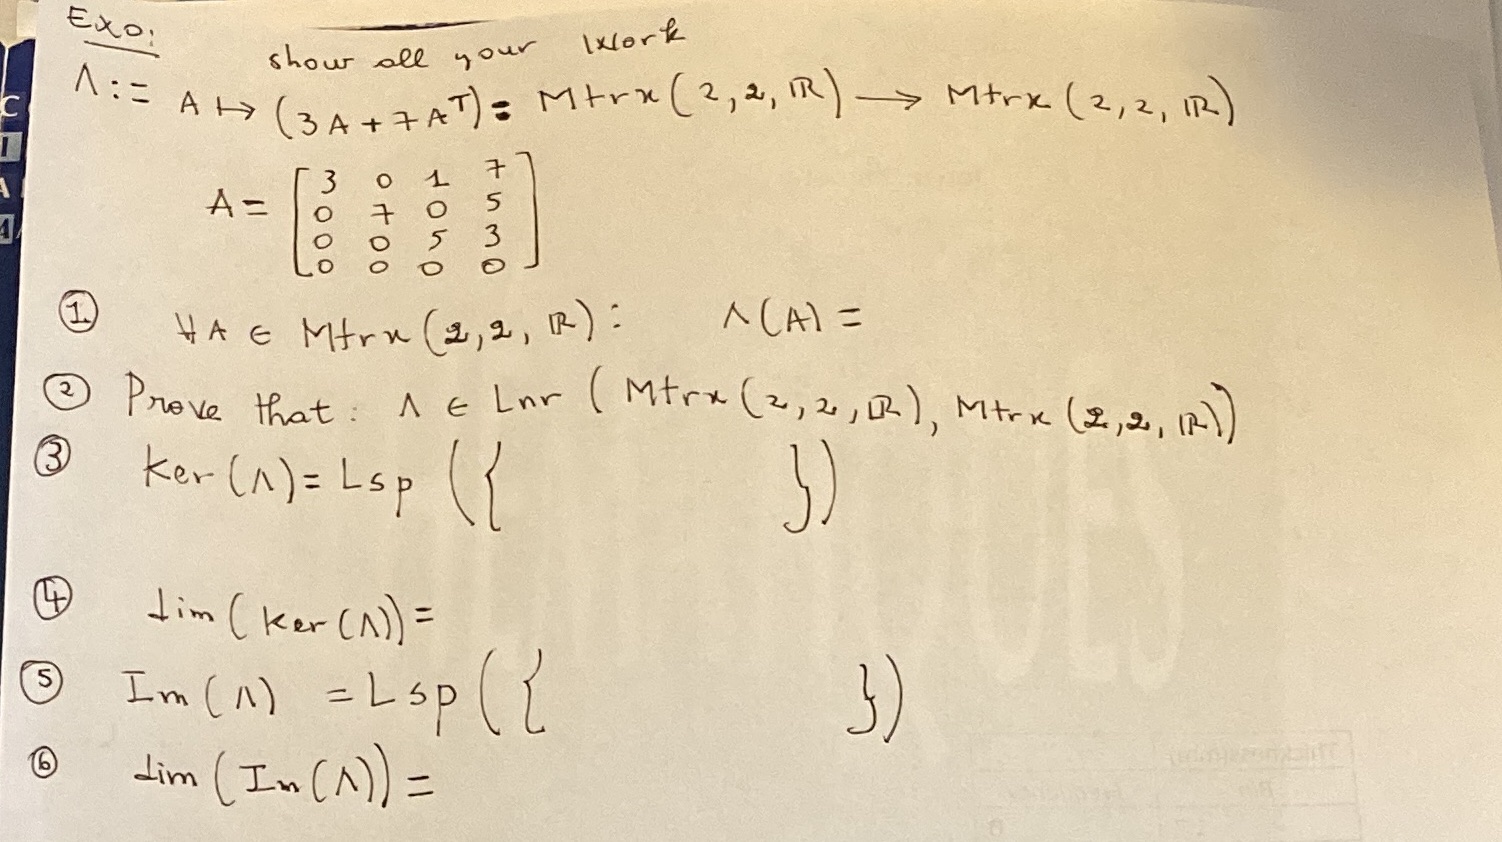 Exo:
show all your Work
Λ := A ↦ (3A + 7Aᵀ) = Mtrx(2,2,ℝ) → Mtrx(2,2,ℝ)
A = [3 0 1 7
0 7 0 5
0 0 5 3
0 0 0 0]
① ∀A ∈ Mtrx(2,2,ℝ): Λ(A) =
② Prove that: Λ ∈ Lnr (Mtrx(2,2,ℝ), Mtrx(2,2,ℝ))
③ Ker(Λ) = Lsp ({ })
④ dim(Ker(Λ)) =
⑤ Im(Λ) = Lsp({ })
⑥ dim(Im(Λ)) =